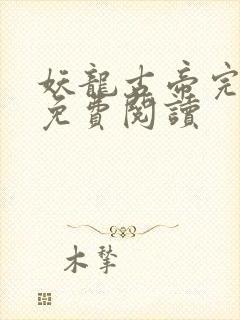 妖龍古帝完
免費閱讀
木擎